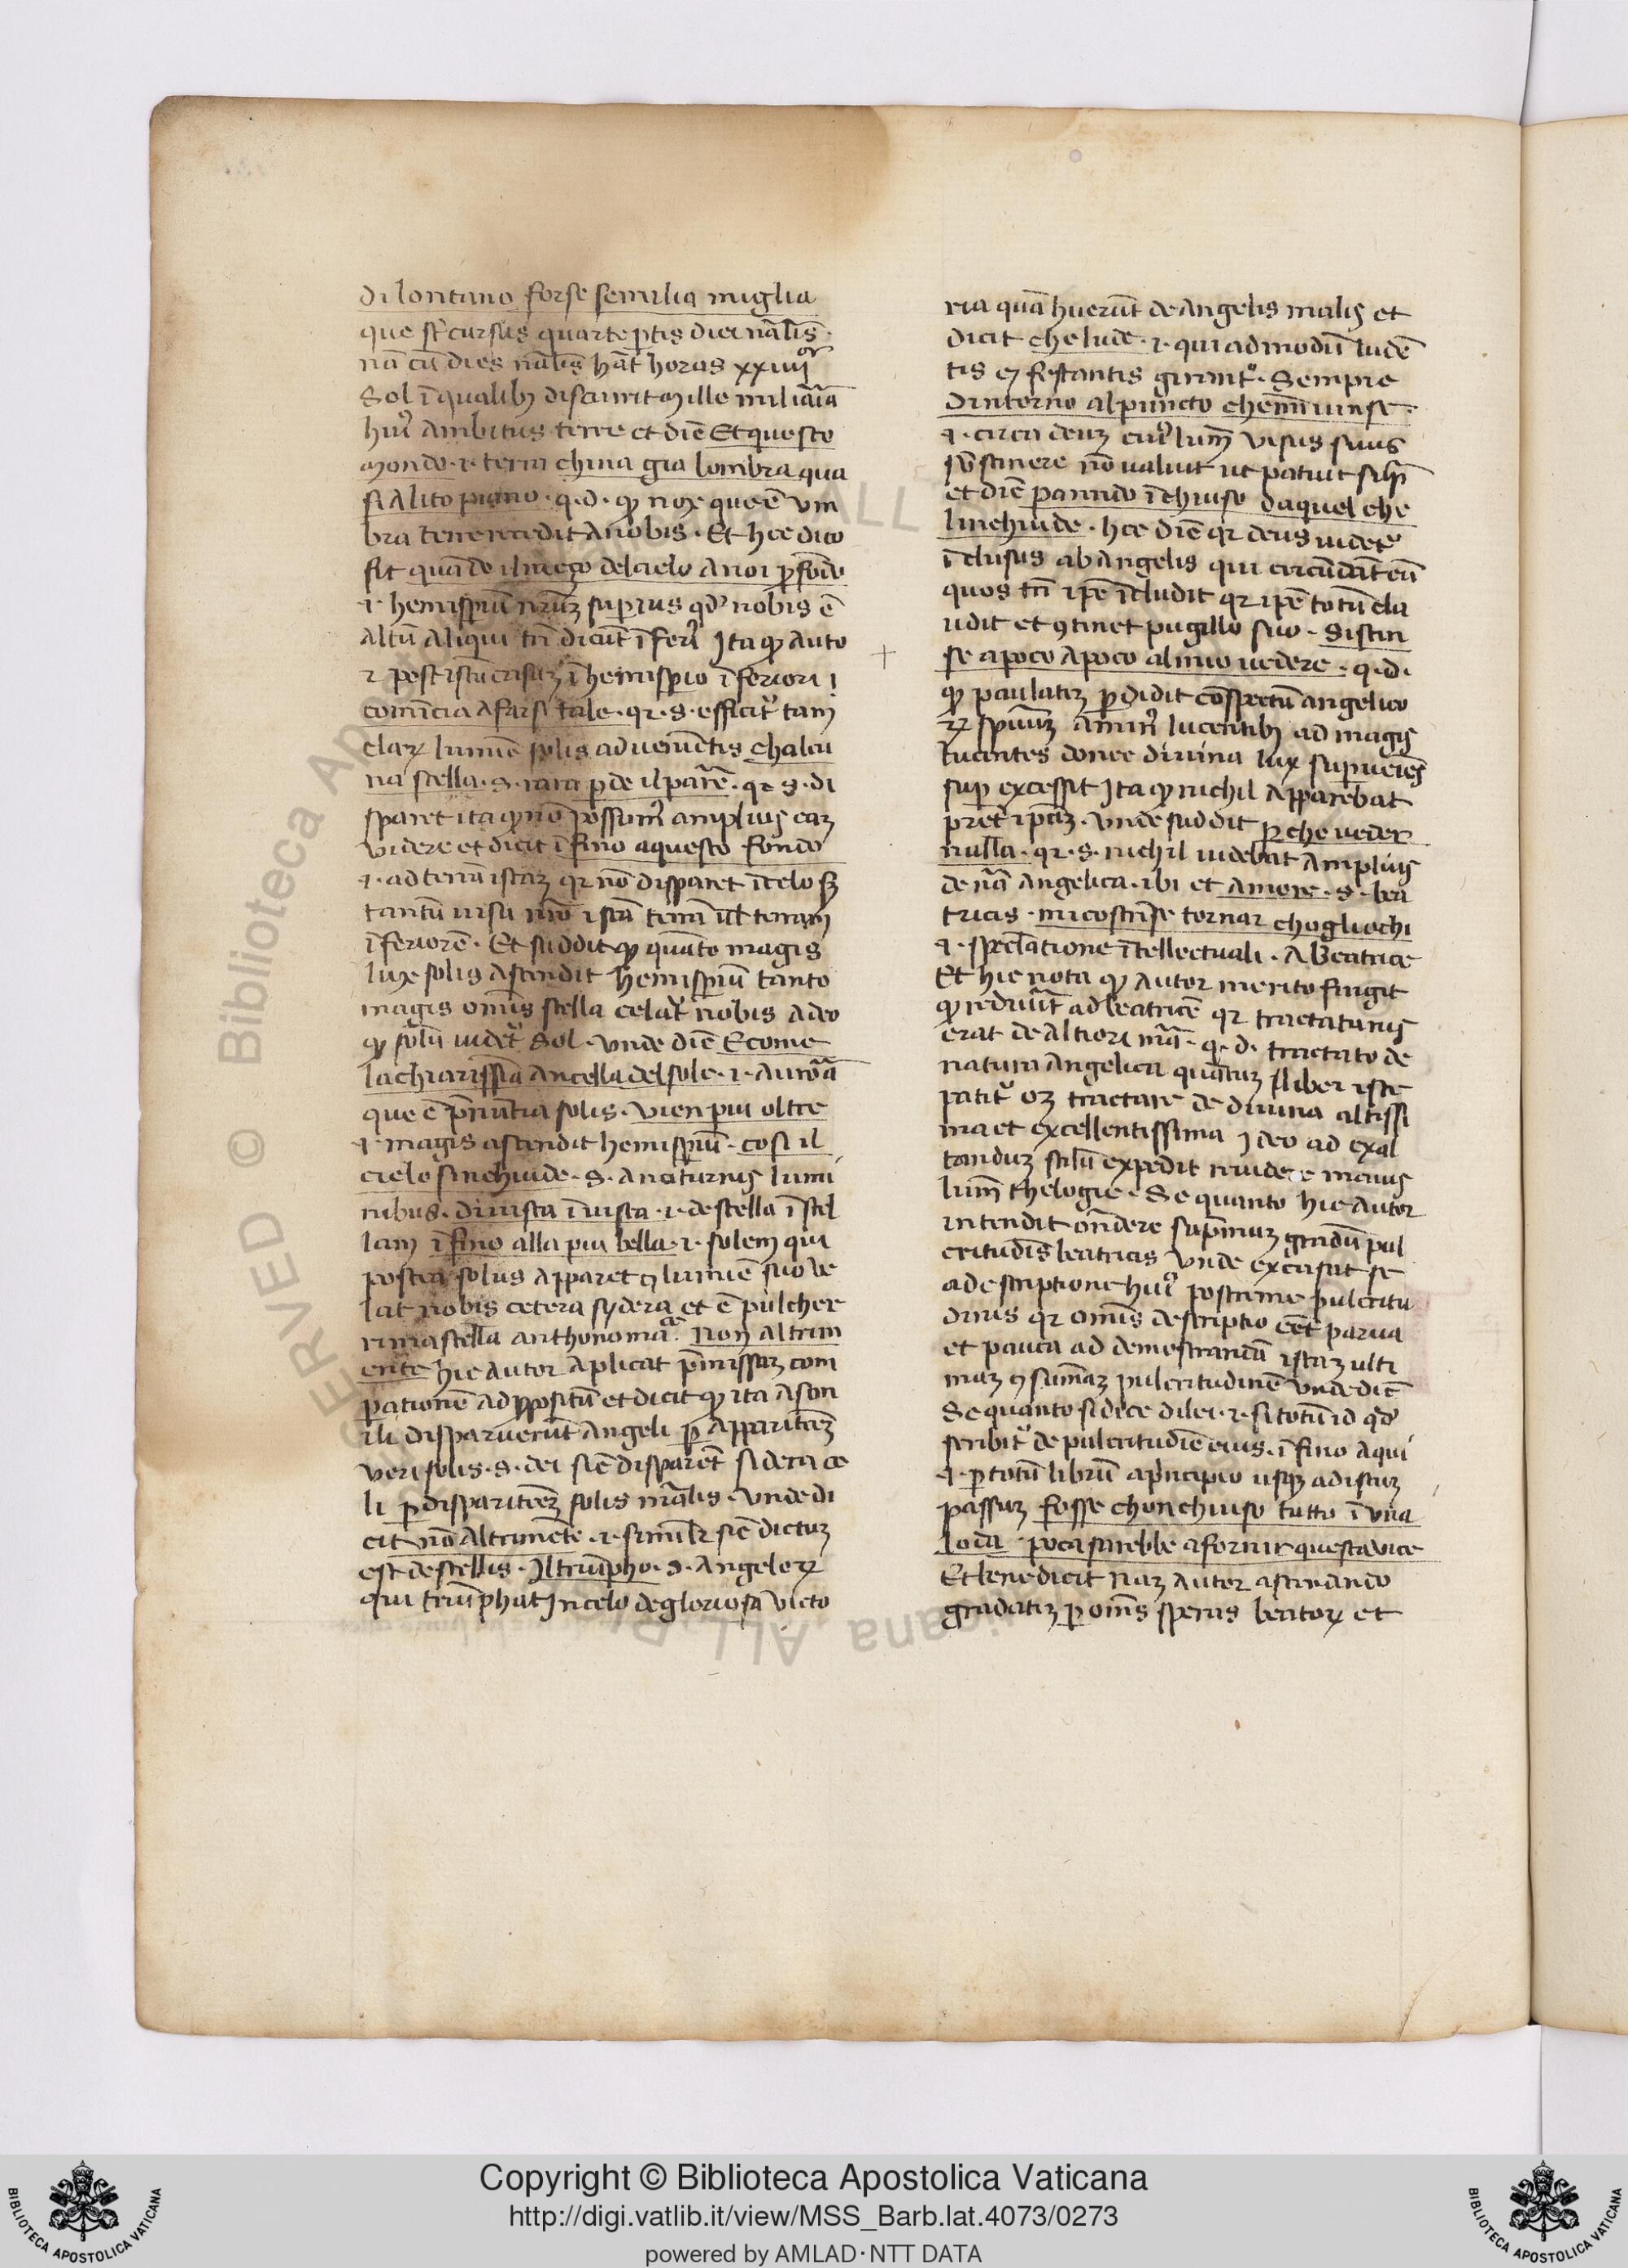 di lontano forse semilia miglia
que st' cursus quarte ptis diei nālis·
nā cū dies nālis hāt horas xxiiii
Sol ī qualibȝ discurrit mille miliaria
hui' ambitus terre et diē Et questo
mondo·i·terra china gia lombra qua
si alito piano·q·d· qȝ nox que ē vm
bra terre recedit anobis· Et hec dico
fit quā do il mezo del cielo anoi pfōdo
·i· hemispiū nrūȝ supius qd' nobis ē
altū aliqui tn̄ dicūt īferi' Ita qȝ auto
hemisperio īferiori
comīcia afarsi tale·qr·s·efficit' tam
claȝ lumīe solis aduenientis chalcu
na stella·s·rara pde il parē·qr·s·di
sparet ita qȝ nō possum' amplius eaȝ
videre et dicit īfino aquesto fondo
·i·ad terrā istaȝ qr nō disparet ī celo sȝ
tantū visu
īferiorē· Et suddit qȝ quāto magis
lux solis ascendit hemispiū tanto
magis omīs stella celat' nobis adeo
qȝ solū videt' Sol· vnde diē E come
la chiarissīa ancella del sole·i·aurōa
que ē pnūtia solis· vien piu oltre
·i· magis ascendit hemispiū· cosi il
cielo sinchiude·s·anocturnis lumi
nibus· diuista īuista·i·de stella ī stel
lam īfino alla piu bella·i·solem qui
postea solus apparet ꝯ lumīe suo ve
lat nobis cetera sydera et ē pulcher
rima stella anthonomā· Non altrim
ente hic autor aplicat pmissaȝ com
pationē ad ppositū et dicit qȝ ita a son
ili disparuerūt angeli p apparitōeȝ
veri solis·s·dei siē disparēt sidera ce
li p disparitōeȝ solis nālis· vnde di
cit nō altrimēte·i·simil'r siē dictuȝ
est de stellis· Il triūpho·s· angeloȝ
qui triūphāt In celo de gloriosa victo
ria quā huerūt de angelis malis et
dicit che lude·i·qui ad modū ludē
tis et festantis girant'· Sempre
dintorno al puncto che mī uinse·
·i·circa deuȝ cui' lumē visus suus
sustinere nō valuit ut patuit
et diē parendo īchiuso da quel che
linchiude· hec diē qr deus uidet'
īclusus ab angelis qui circūdāt eū
quos tn̄ ipē īcludit qr ipē totū cla
udit et ꝯtinet pugillo suo· Sistin
se apoco apoco almio uedere·q·d·
qȝ paulatiȝ pdidit cōspectū angelico
rȝ spūūȝ a min' lucentibȝ ad magis
lucentes donec diuina lux supueiēs
sup excessit Ita qȝ nichil apparebat
pret' ipaȝ· vnde suddit pche ueder
nulla·qr·s·nichil uidebat amplius
de nā angelica·ibi et amore·s·bea
tricis·mi costrīse tornar chogliochi
·i·speclatione ītellectuali· a Beatrice
Et hic nota qȝ autor merito fingit
qȝ rediuit ad beatricē qr tractaturus
erat de altiori mā·q·d·tractato de
natura angelica quātuȝ liber iste
patit' oȝ tractare de diuina altissi
ma et excellentissima Ideo ad exal
tanduȝ stilū expedit mayus
lumē theologie· Se quanto hic autor
intendit on̄dere supremuȝ gradū pul
critudīs beatricis vnde excusat se
a descriptione hui' postreme pulcritu
dinis qr omīs descriptio eēt parua
et pauca ad demostrandā istaȝ ulti
maȝ ꝯ sumāȝ pulcritudinē vnde dic̄
Se quanto si dice di lei·i·si totū id qd'
scribit' de pulcritudīe eius·īfino aqui
·i·p totū librū a pncipio usqȝ ad istuȝ
passuȝ fosse chonchiuso tutto ī vna
loda· poca sarebbe a fornir questa uice
Et benedicit naȝ autor ascendendo
gradatiȝ p omēs speras beatoȝ et
Copyright © Biblioteca Apostolica Vaticana
http://digi.vatlib.it/view/MSS_Barb.lat.4073/0273
powered by AMLAD·NTT DATA
BIBLIOTECA APOSTOLICA VATICANA
BIBLIOTECA APOSTOLICA VATICANA